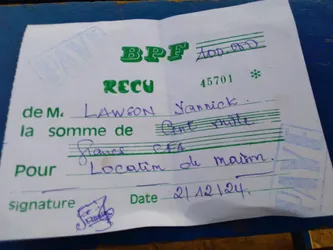 BPF 100.000
RECU 45701 *
de M. LAWSON Yannick.
la somme de Cent mille
francs CFA
Pour Location de maison.
Signature Date 2/12/24